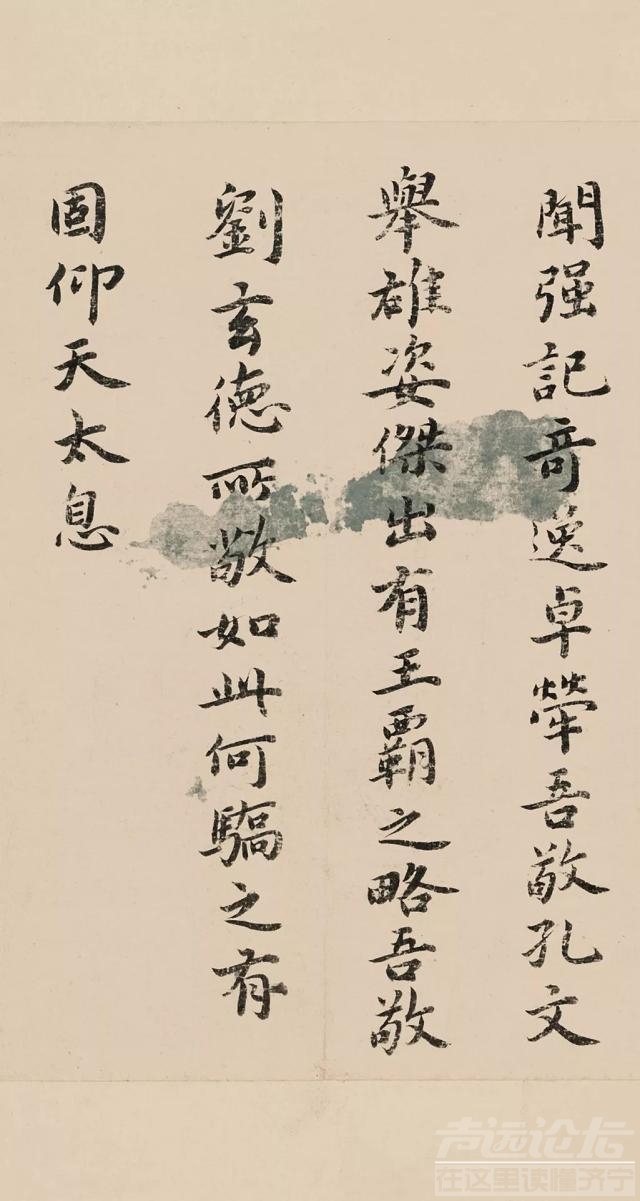 聞强記奇逸卓犖吾敬孔文
舉雄姿傑出有王覇之略吾敬
劉玄德所敬如此何驕之有
固仰天太息
声远论坛
在这里读懂济宁